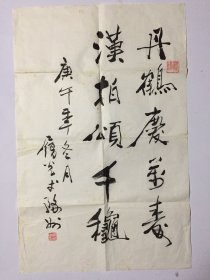 丹鶴慶萬壽
漢柏頌千穐
庚午年冬月